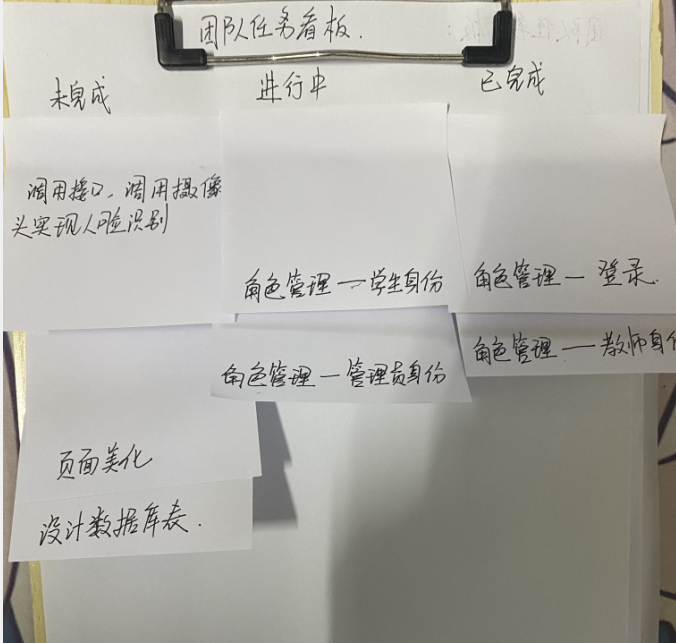 团队任务看板.
未完成
进行中
已完成
调用接口、调用摄像
头实现人脸识别
页面美化
设计数据库表.
角色管理一学生身份
角色管理一管理员身份
角色管理一登录.
角色管理一教师身